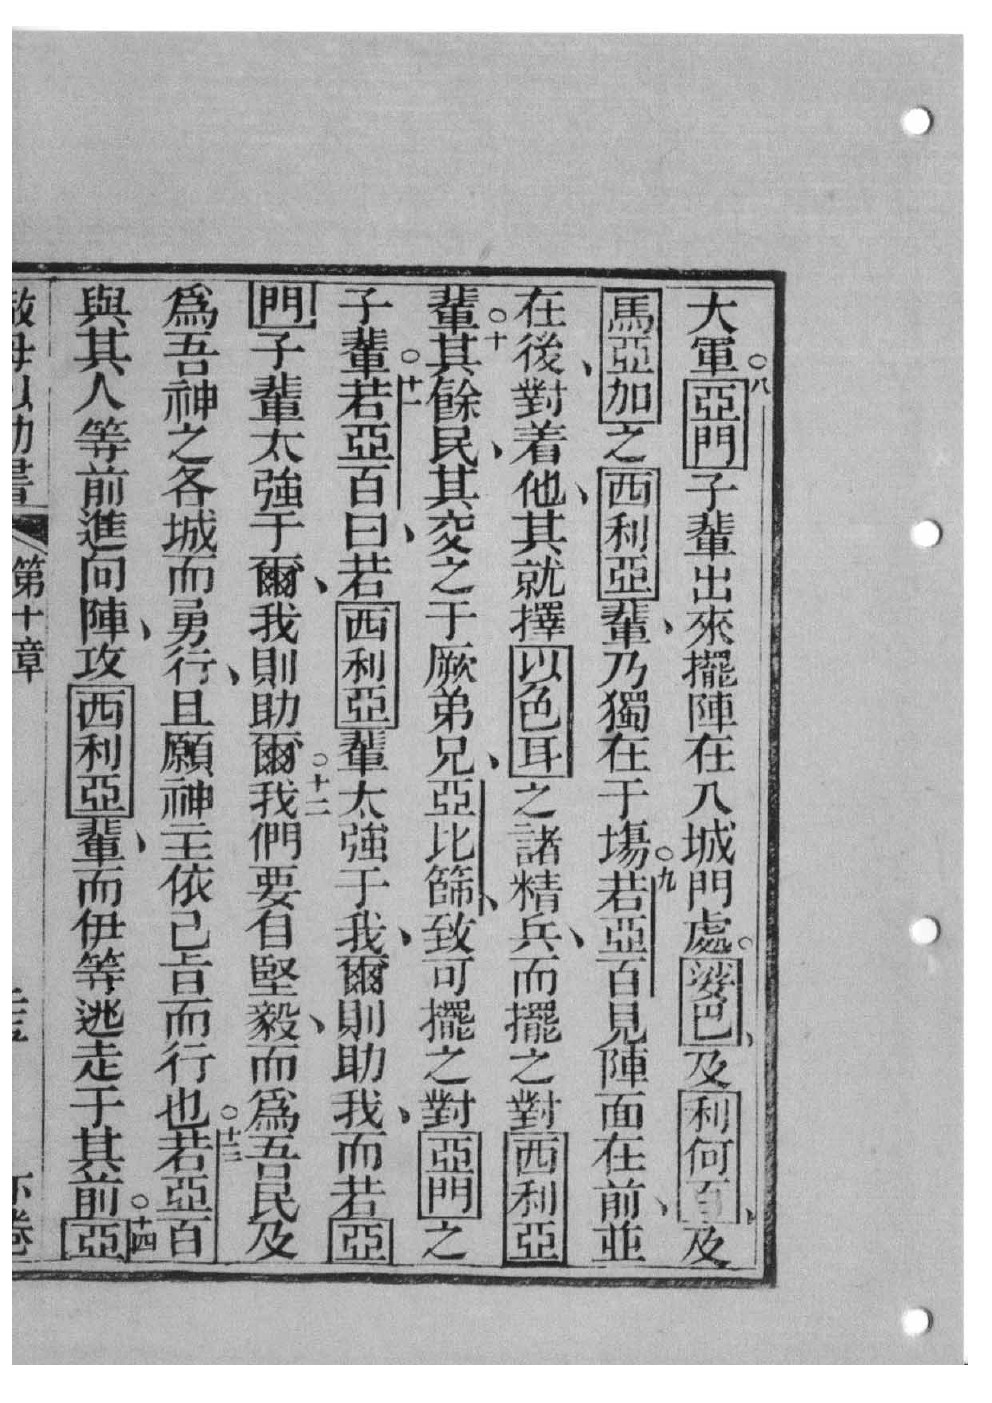 大軍○八亞門子輩出來擺陣在入城門處○婆巴及利何百及
馬亞加之西利亞輩、乃獨在于塲○九若亞百見陣面在前、並
在後、對着他、其就擇以色耳之諸精兵、而擺之對西利亞
輩○十其餘民、其交之于厥弟兄、亞比篩、致可擺之對亞門之
子輩○十一若亞百、曰若西利亞輩太強于我、爾則助我、而若亞
門子輩太強于爾、我則助爾○十二我們要自堅毅、而爲吾民及
爲吾神之各城而勇行、且願神主依己旨而行也○十三若亞百
與其人等前進向陣、攻西利亞輩、而伊等逃走于其前○十四亞
撒母以勒書 第十章 下卷